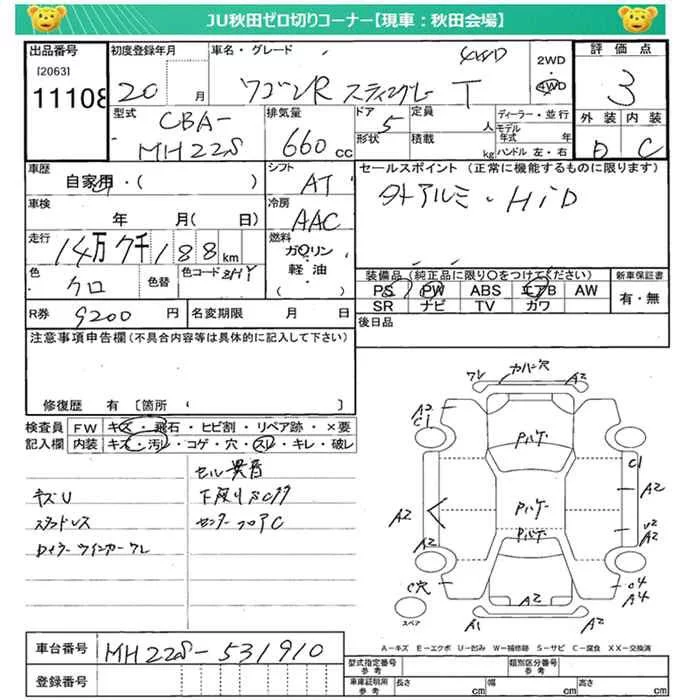 JU秋田ゼロ切りコーナー【現車：秋田会場】
出品番号 初度登録年月 車名・グレード 4WD 2WD 4WD 評価点
[2063]
11108 20 月 ワゴンR スティングレー T 3
型式 排気量 ドア 定員 ディーラー・並行 外装 内装
CBA- 660 cc 5 人 モデル年式 年 D C
MH22S 形状 積載 kg ハンドル 左・右
車歴 シフト セールスポイント (正常に機能するものに限ります)
自家用・( ) AT 社外アルミ・HiD
車検 冷房
年 月( 日) AAC
走行 燃料
14万7千188 km ガソリン
軽油
( )
色 色替 色コード 装備品 (純正品に限り○をつけてください) 新車保証書
クロ ZHY PS PW ABS エアB AW 有・無
SR ナビ TV カワ
R券 9200 円 名変期限 月 日 後日品
注意事項申告欄 (不具合内容等は具体的に記入して下さい)
修復歴 有 [箇所 ]
検査員 FW キズ・飛石・ヒビ割・リペア跡・×要
記入欄 内装 キズ・汚レ・コゲ・穴・スレ・キレ・破レ
セル異音
キズU 下廻りSCクク
スタッドレス センターフロアC
Dミラーウインカーワレ
ワレ カバン穴 A2
A2 C1
Pハゲ
C1
A2
A2
Pハゲ
U2 A2
Pハゲ
A2
C穴
C4 A4
A2
A1 A2
スペア
A－キズ E－エクボ U－凹み W－補修跡 S－サビ C－腐食 XX－交換済
車台番号 MH22S-531910
登録番号
型式指定番号 参考 類別区分番号 参考
車庫証明用 参考 長さ cm 幅 cm 高さ cm